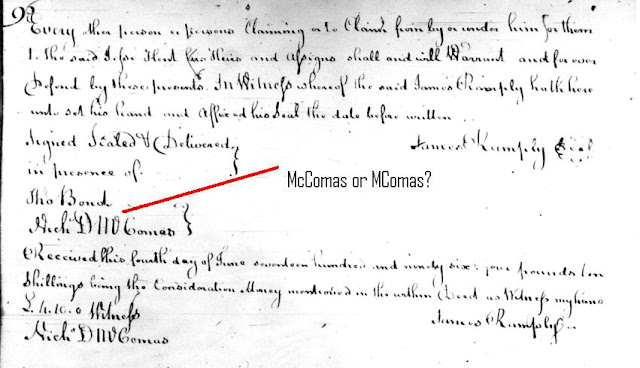 98
Every other person or persons Claiming or to Claim from by or under him or them
1. The said Jesse Hert his Heirs and Assigns shall and will Warrant and for ever
Defend by these presents. In Witness whereof the said James Rumply hath here
unto set his hand and Affixed his Seal the date before written
Signed Sealed & Delivered
James Rumply Seal
in presence of
McComas or MComas?
Tho Bond
Nich.s D McComas
Received this fourth day of June seventeen hundred and ninety six four pounds ten
Shillings being the Consideration Money mentioned in the within Deed as Witness my hand
£ 4.10.0 Witness
James Rumply
Nich.s D McComas